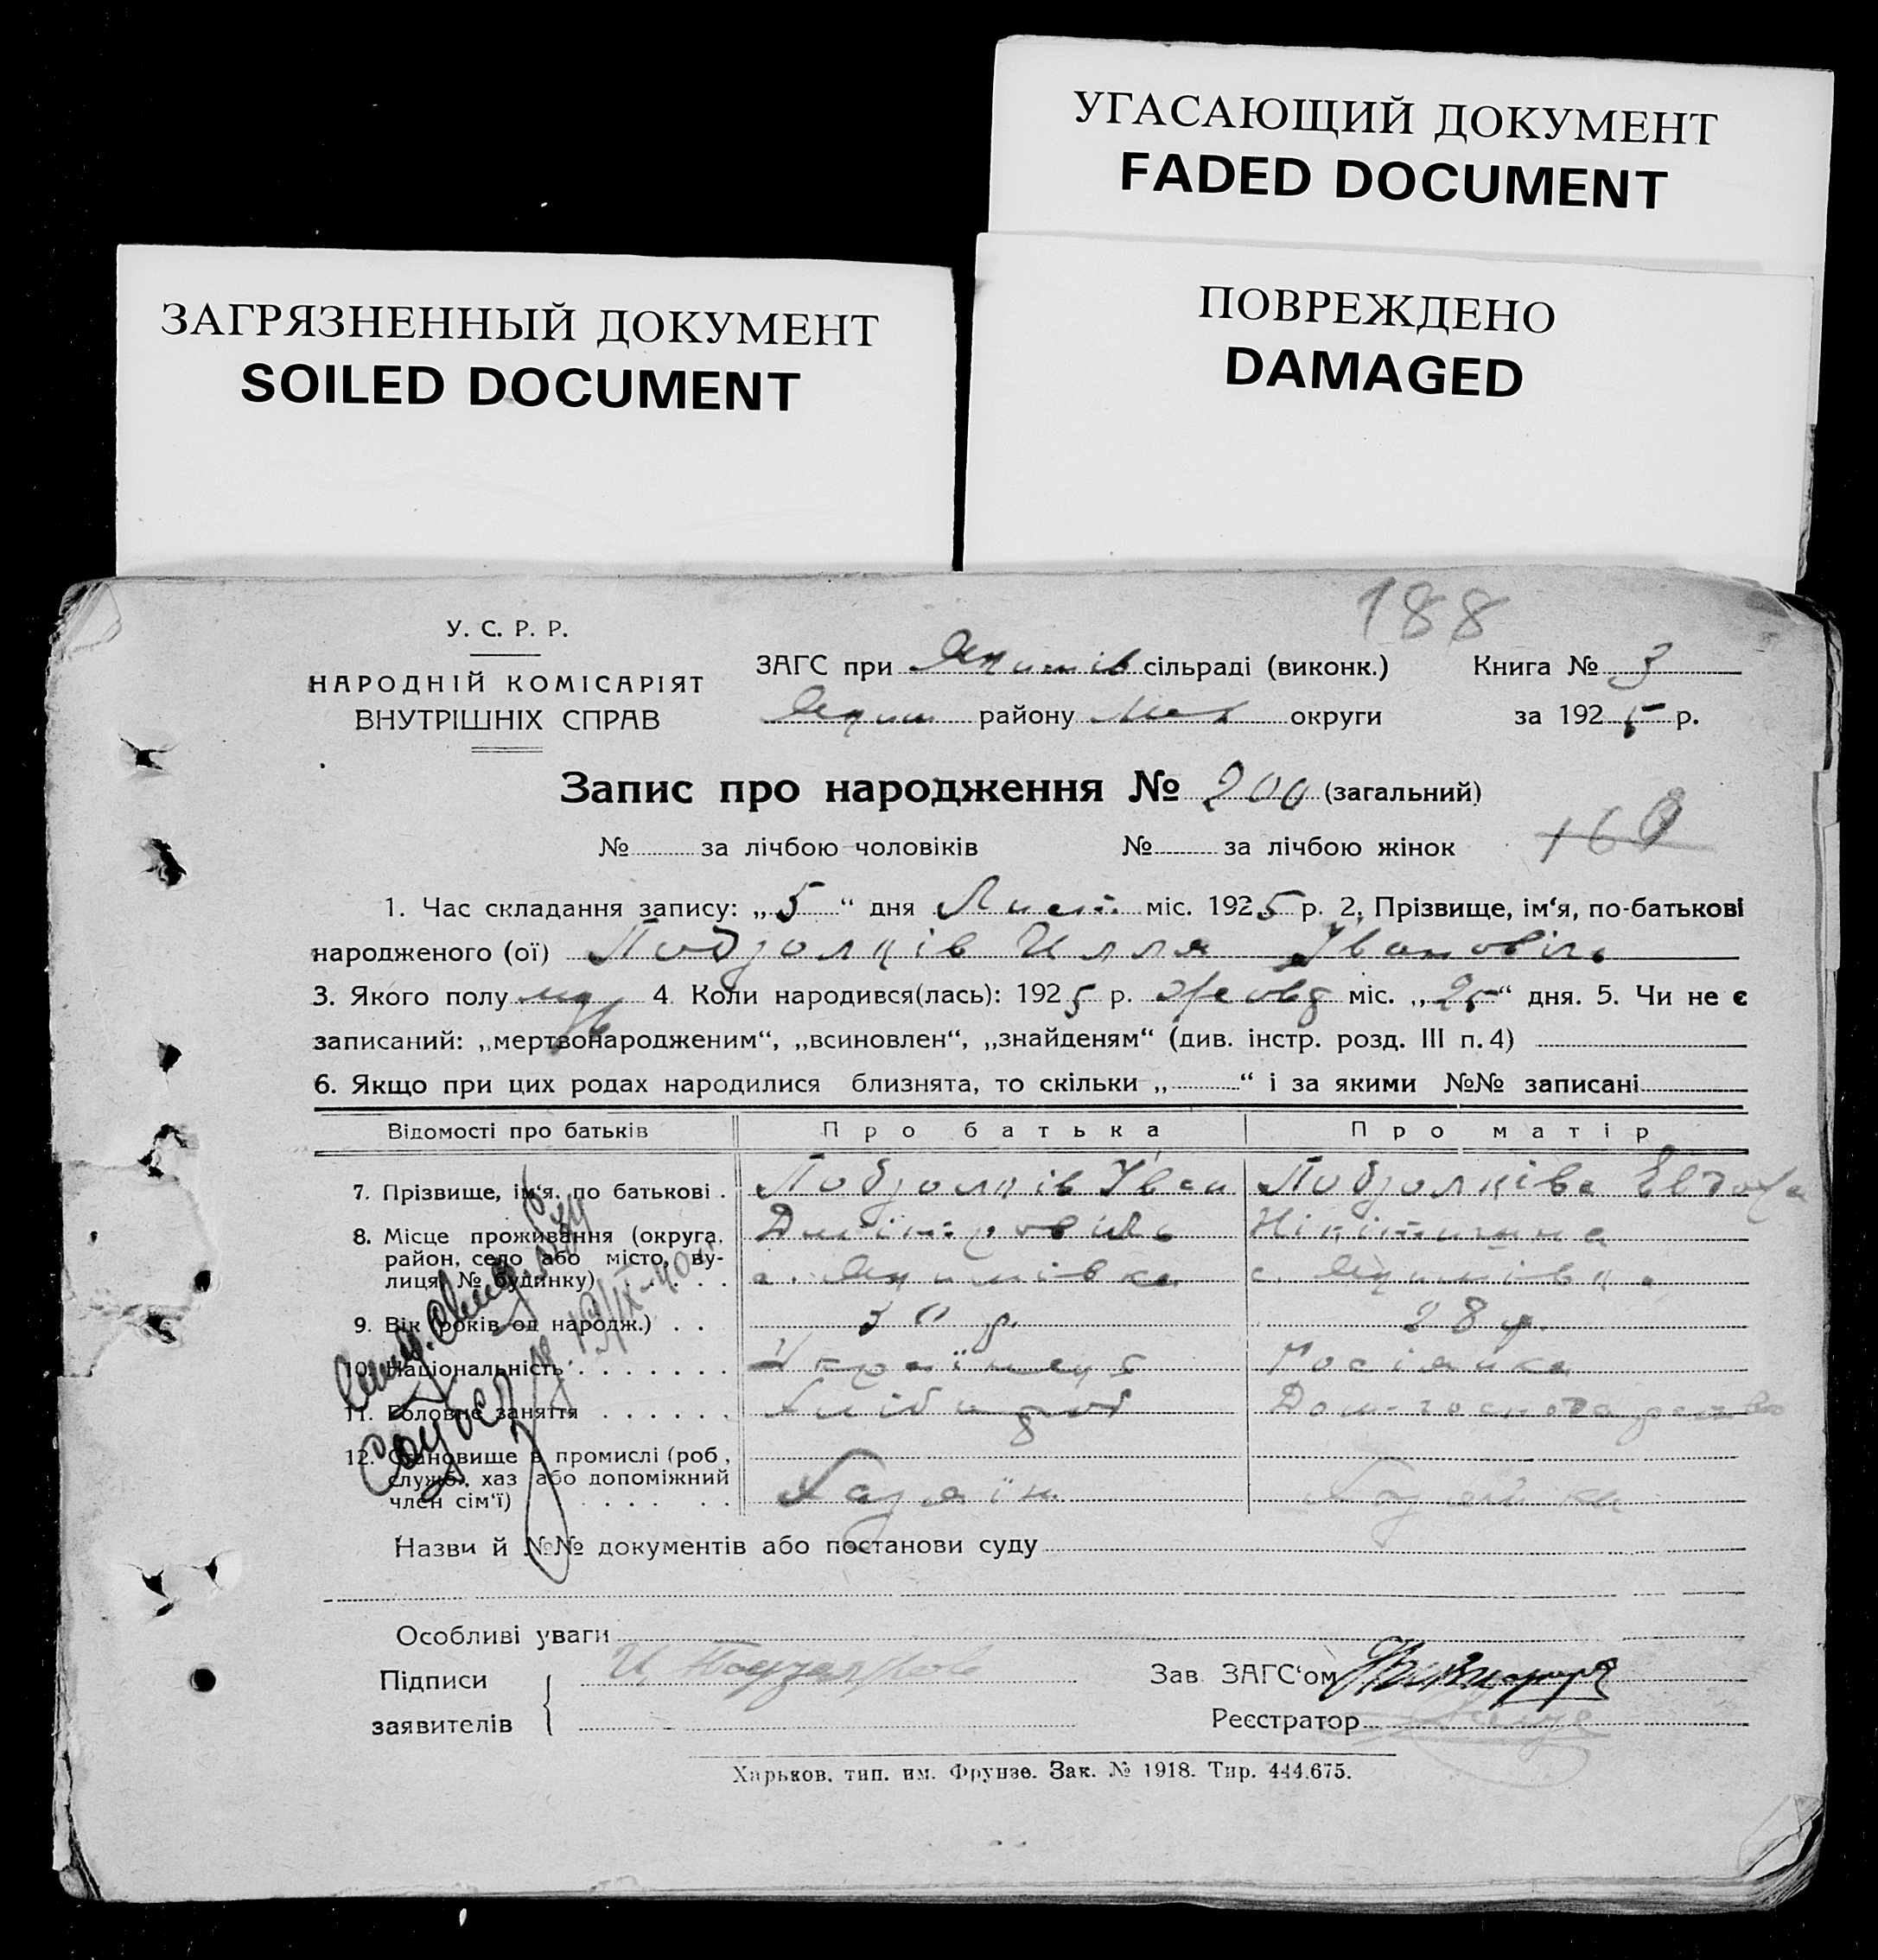 УГАСАЮЩИЙ ДОКУМЕНТ
FADED DOCUMENT
ЗАГРЯЗНЕННЫЙ ДОКУМЕНТ
SOILED DOCUMENT
ПОВРЕЖДЕНО
DAMAGED
188
У. С. Р. Р.
НАРОДНІЙ КОМІСАРІЯТ
ВНУТРІШНІХ СПРАВ
ЗАГС при сільраді (виконк.) Книга № 3
району округи за 1925 р.
Запис про народження № 200 (загальний)
№ за лічбою чоловіків № за лічбою жінок 160
1. Час складання запису: „5“ дня Лист. міс. 1925 р. 2. Прізвище, ім‘я, по-батькові
народженого (ої) Подзолків Илля Іванович
3. Якого полу муж 4 Коли народився(лась): 1925 р. Жовд міс. „25“ дня. 5. Чи не є
записаний: „мертвонародженим“, „всиновлен“, „знайденям“ (див. інстр. розд. III п. 4)
6. Якщо при цих родах народилися близнята, то скільки „ “ і за якими №№ записані
Відомості про батьків Про батька Про матір
7. Прізвище, ім‘я, по батькові . Подзолків Іван Подзолківа
8. Місце проживання (округа, Дмітрович Нікітична
район, село або місто, ву-
лиця, № будинку) с. с.
9. Вік (років од народж.) . . 30 р. 28 р.
10. Національність . . . . . . . Українець Росіянка
11. Головне заняття . . . . . . Хлібороб Дом. господарство
12. Становище в промислі (роб.,
служб., хаз або допоміжний
член сім‘ї) . . . . . . . Хазяїн Хазяйка
Назви й №№ документів або постанови суду
Особливі уваги
Підписи Зав. ЗАГС‘ом
заявителів Реєстратор
Харьков, тип. им. Фрунзе. Зак. № 1918. Тир. 444.675.